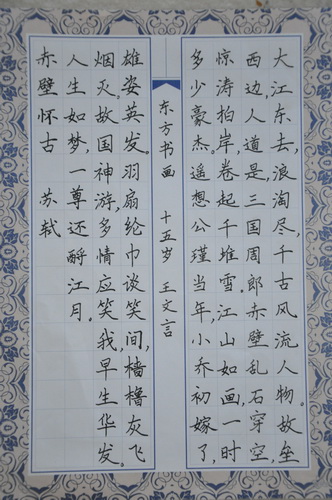 大江东去,浪淘尽,千古风流人物。故垒
西边人道是,三国周郎赤壁乱石穿空,
惊涛拍岸,卷起千堆雪。江山如画,一时
多少豪杰。遥想公瑾当年,小乔初嫁了,
东方书画 十五岁 王文言
雄姿英发。羽扇纶巾谈笑间,樯橹灰飞
烟灭。故国神游,多情应笑我,早生华发。
人生如梦,一尊还酹江月。
赤壁怀古 苏轼